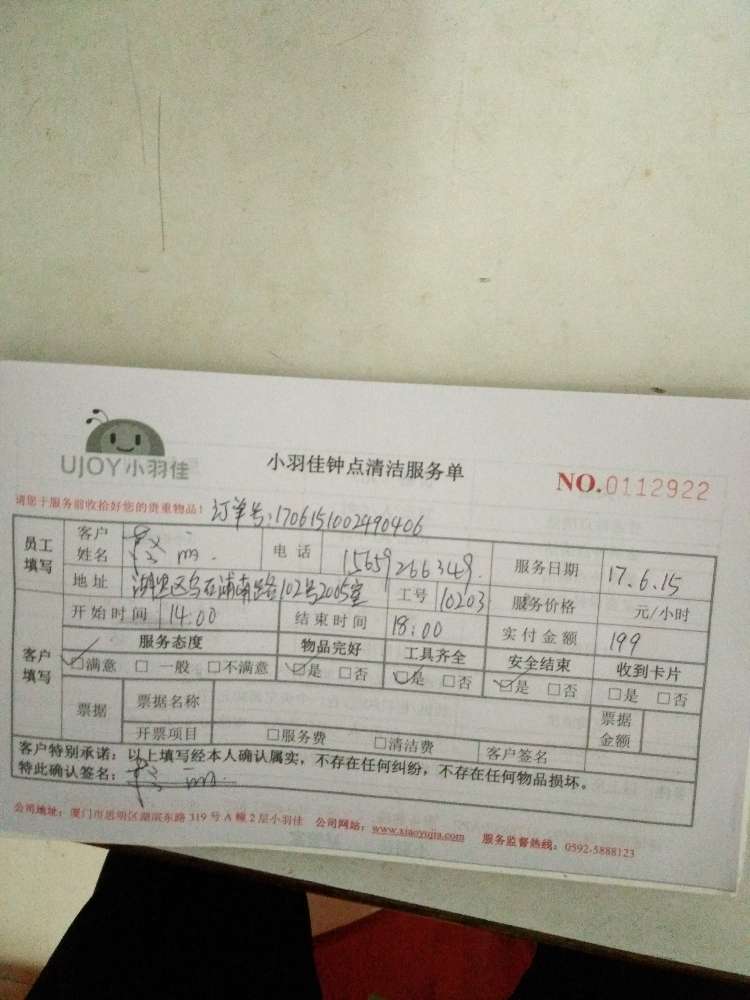 UJOY小羽佳
小羽佳钟点清洁服务单
NO.0112922
请您于服务前收拾好您的贵重物品！
订单号:1706151002490406
员工填写 客户姓名 电话 15659266349. 服务日期 17.6.15
地址 湖里区乌石浦南路102号2005室 工号 10203 服务价格 元/小时
客户填写 开始时间 14:00 结束时间 18:00 实付金额 199
服务态度 物品完好 工具齐全 安全结束 收到卡片
☑满意 □一般 □不满意 ☑是 □否 ☑是 □否 ☑是 □否 □是 □否
票据 票据名称 票据金额
开票项目 □服务费 □清洁费 客户签名
客户特别承诺：以上填写经本人确认属实，不存在任何纠纷，不存在任何物品损坏。
特此确认签名：
公司地址：厦门市思明区湖滨东路 319 号 A 幢 2 层小羽佳 公司网站：www.xiaoyujia.com 服务监督热线：0592-5888123